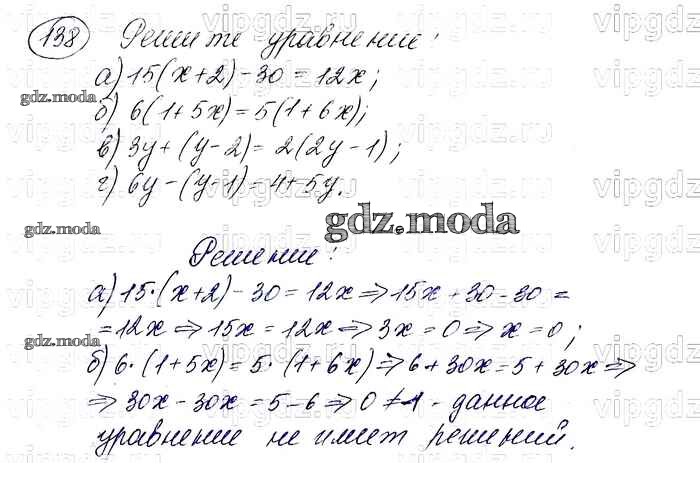 138 Решите уравнение:
а) 15(x+2)-30=12x;
gdz.moda
б) 6(1+5x)=5(1+6x);
в) 3y+(y-2)=2(2y-1);
г) 6y-(y-1)=4+5y.
gdz.moda
gdz.moda
Решение:
а) 15·(x+2)-30=12x⇒15x+30-30=
=12x⇒15x=12x⇒3x=0⇒x=0;
gdz.moda
б) 6·(1+5x)=5·(1+6x)⇒6+30x=5+30x⇒
⇒30x-30x=5-6⇒0≠-1 - данное
уравнение не имеет решений.
vipgdz.ru